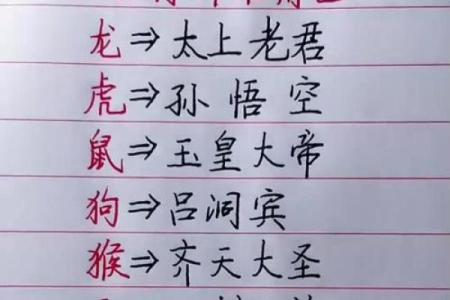 龙⇒太上老君
虎⇒孙悟空
鼠⇒玉皇大帝
狗⇒吕洞宾
猴⇒齐天大圣